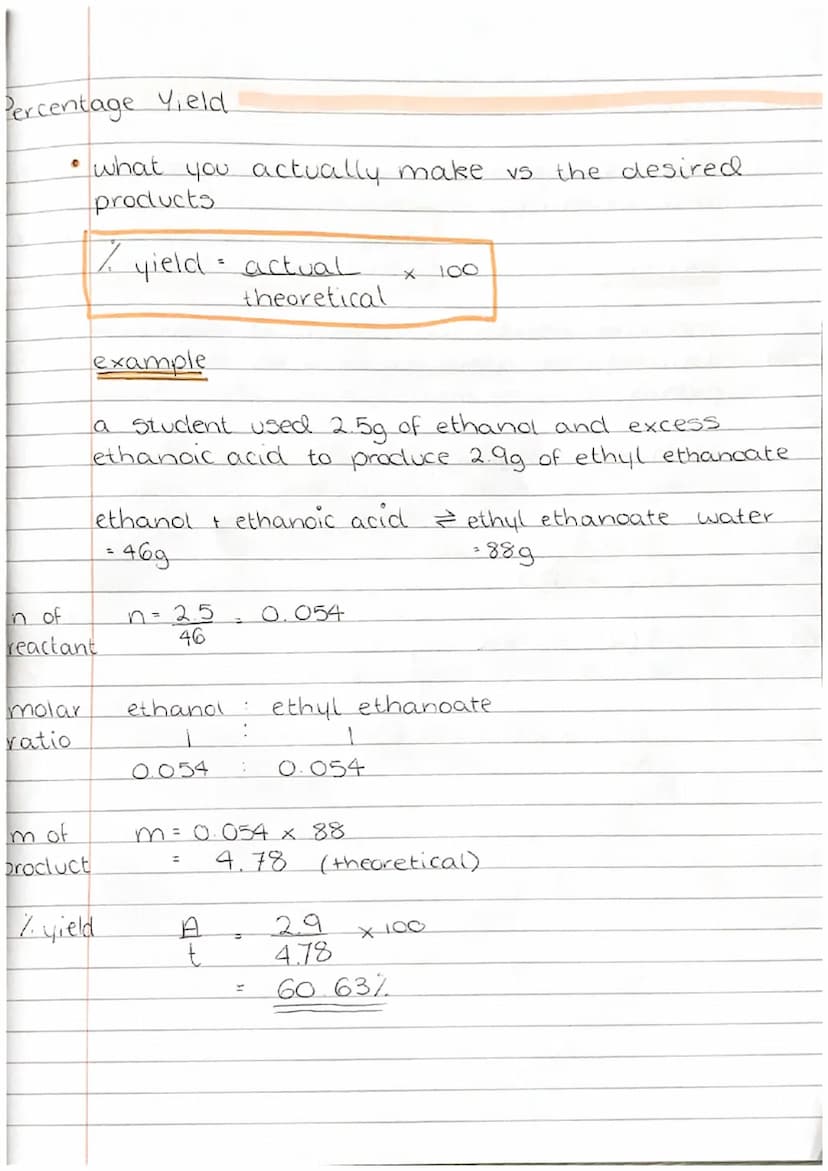 Percentage Yield
• what you actually make vs the desired
products
% yield = actual × 100
theoretical
example
a student used 2.5g of ethanol and excess
ethanoic acid to produce 2.9g of ethyl ethanoate
ethanol + ethanoic acid ⇌ ethyl ethanoate water
= 46g = 88g
n of n = 2.5 = 0.054
reactant 46
molar ethanol : ethyl ethanoate
ratio 1 : 1
0.054 : 0.054
m of m = 0.054 × 88
product = 4.78 (theoretical)
% yield A = 2.9 × 100
t 4.78
= 60.63%